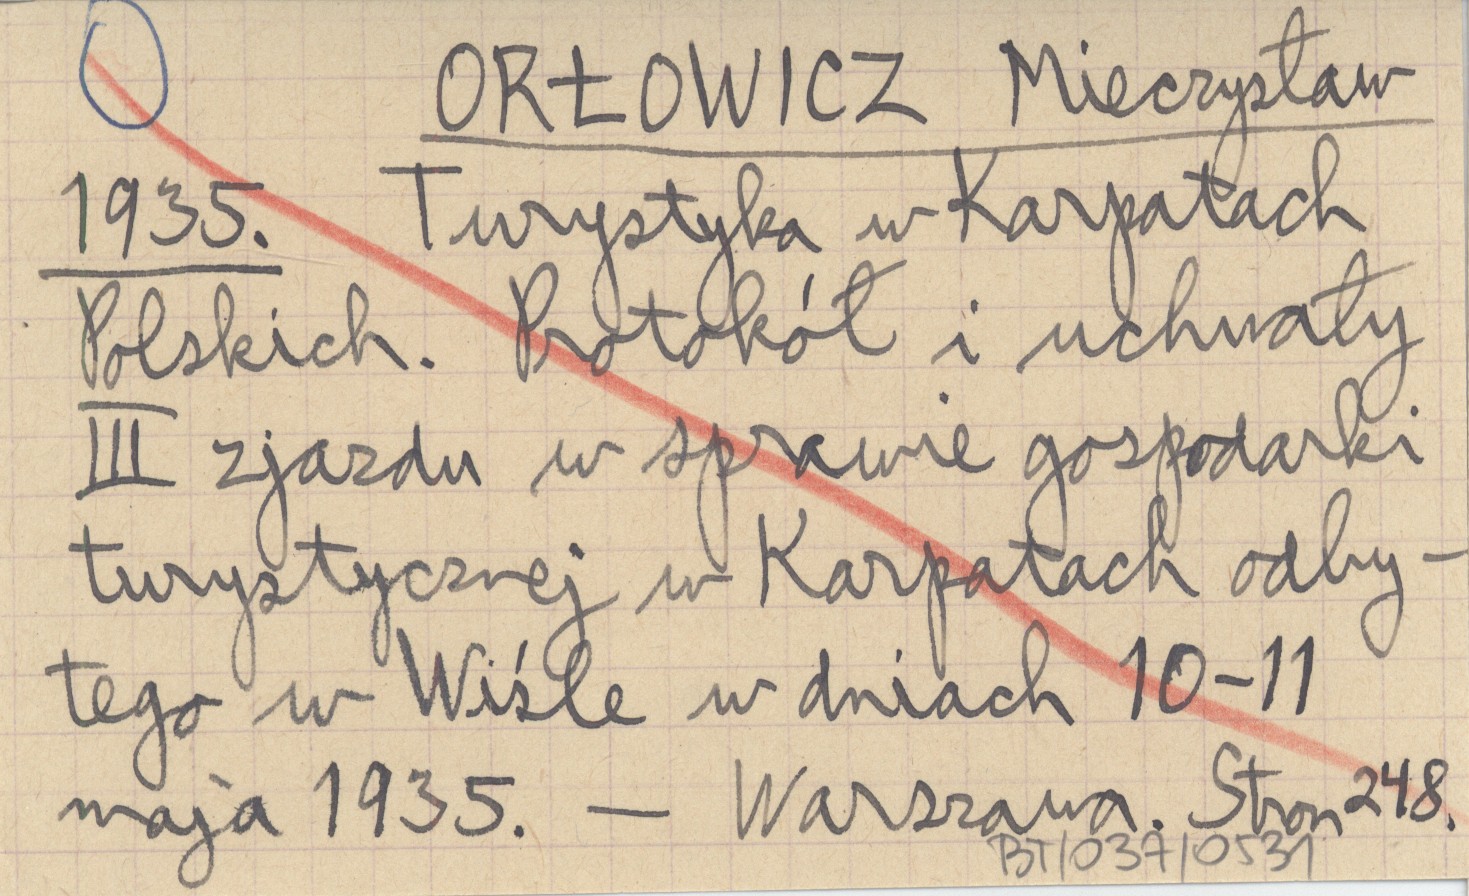 ORŁOWICZ Mieczysław
1935. Turystyka w Karpatach
Polskich. Protokół i uchwały
III zjazdu w sprawie gospodarki
turystycznej w Karpatach odby-
tego w Wiśle w dniach 10-11
maja 1935. — Warszawa. Stron 248.
BT/037/0531